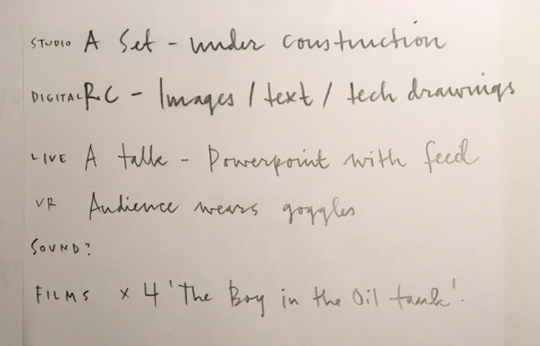 STUDIO A Set - under construction
DIGITAL RC - Images / text / tech drawings
LIVE A talk - Powerpoint with feed
VR Audience wears goggles
SOUND?
FILMS x 4 'The Boy in the Oil tank'.